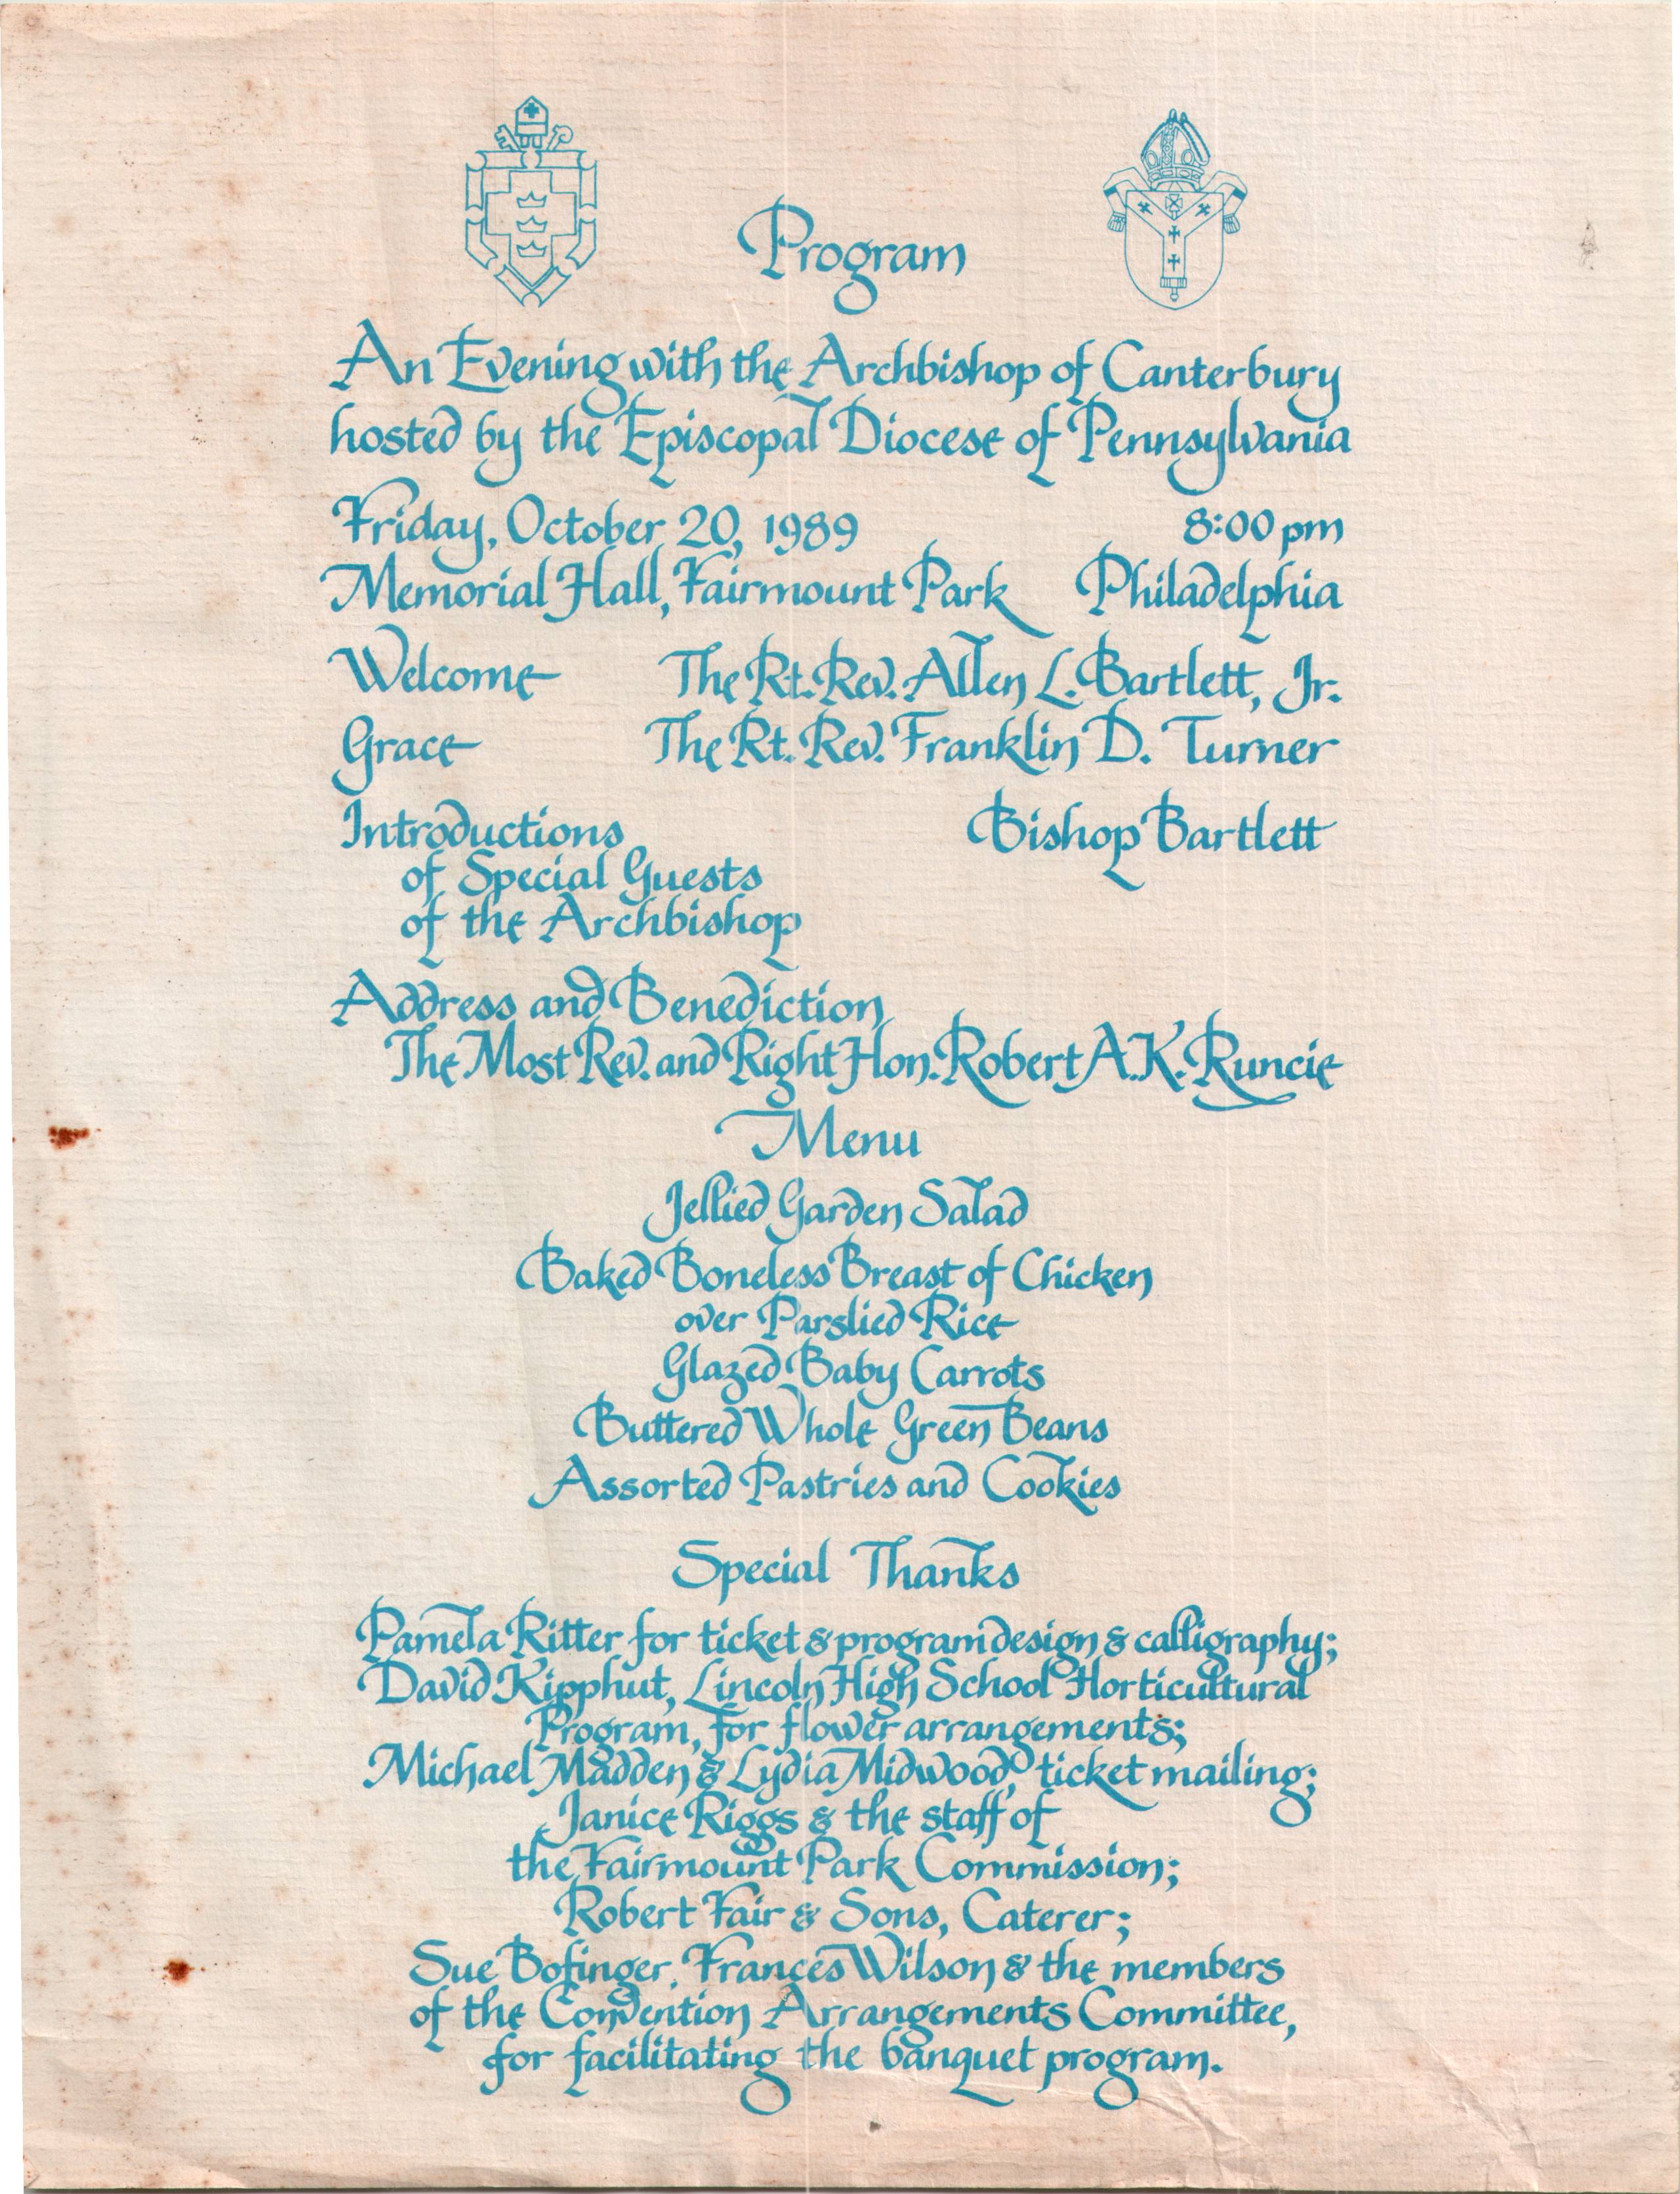 Program
An Evening with the Archbishop of Canterbury
hosted by the Episcopal Diocese of Pennsylvania
Friday, October 20, 1989 8:00 pm
Memorial Hall, Fairmount Park Philadelphia
Welcome The Rt. Rev. Allen L. Bartlett, Jr.
Grace The Rt. Rev. Franklin D. Turner
Introductions Bishop Bartlett
of Special Guests
of the Archbishop
Address and Benediction
The Most Rev. and Right Hon. Robert A.K. Runcie
Menu
Jellied Garden Salad
Baked Boneless Breast of Chicken
over Parslied Rice
Glazed Baby Carrots
Buttered Whole Green Beans
Assorted Pastries and Cookies
Special Thanks
Pamela Ritter for ticket & program design & calligraphy;
David Kipphut, Lincoln High School Horticultural
Program, for flower arrangements;
Michael Madden & Lydia Midwood, ticket mailing;
Janice Riggs & the staff of
the Fairmount Park Commission;
Robert Fair & Sons, Caterer;
Sue Bofinger, Frances Wilson & the members
of the Convention Arrangements Committee,
for facilitating the banquet program.